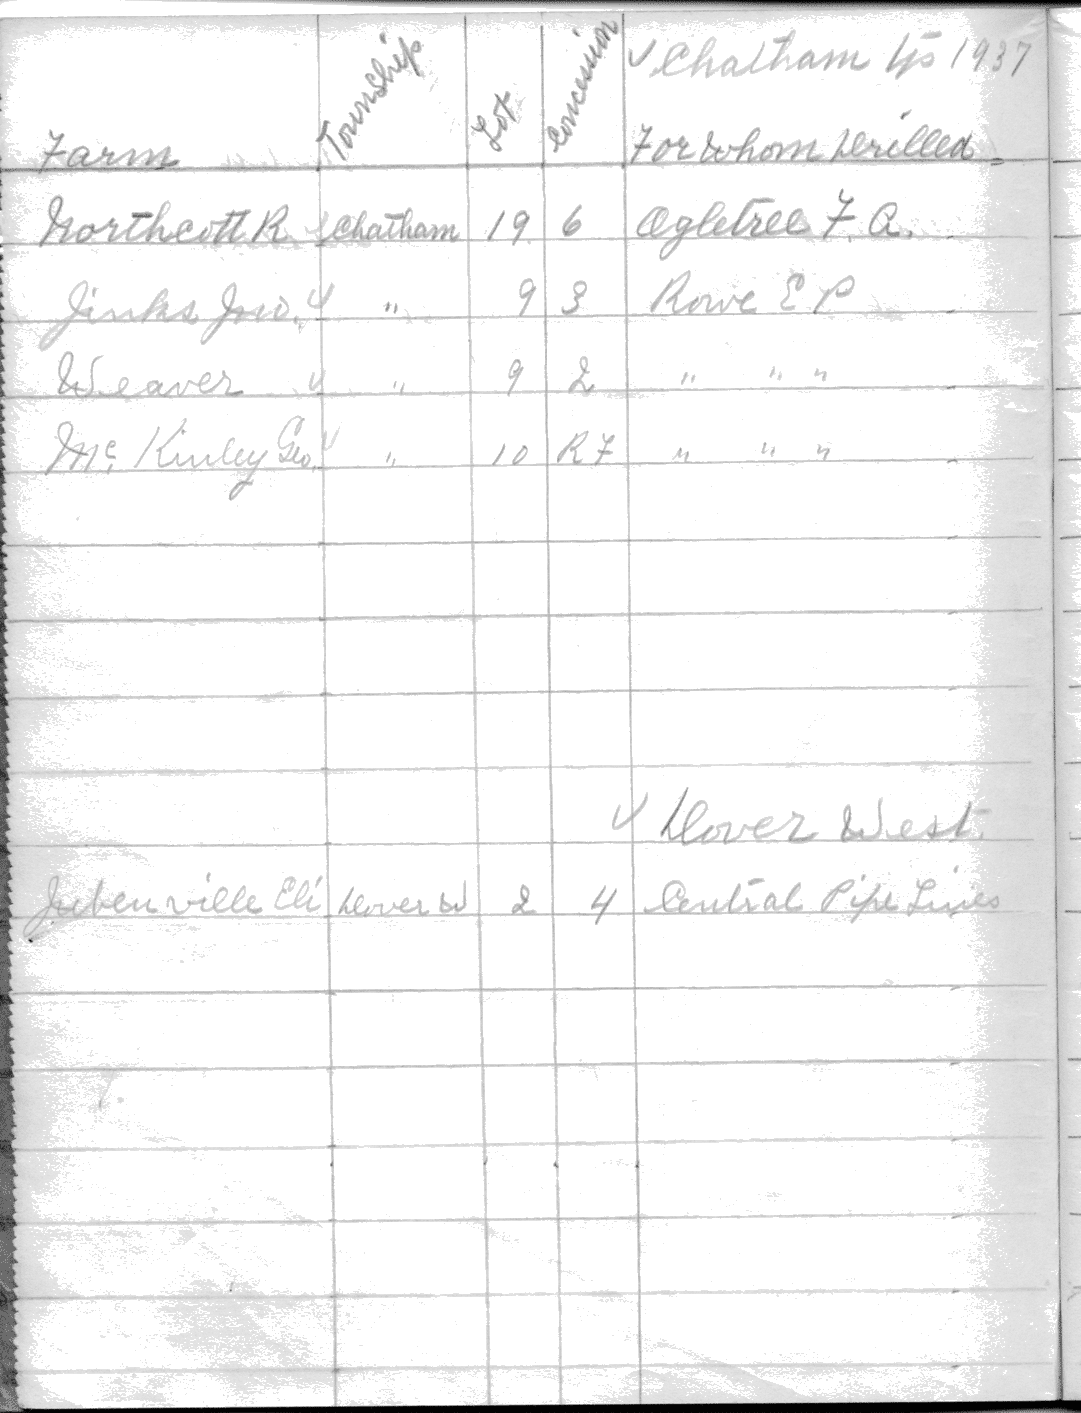 ✓ Chatham Tp 1937
Farm Township Lot Concession For Whom Drilled
Northcott R. Chatham 19 6 Ogletree F. A.
Jinks Jno. ✓ " 9 3 Rowe E P
Weaver ✓ " 9 2 " " "
Mc Kinley Geo. ✓ " 10 R F " " "
✓ Dover West.
Jubenville Eli Dover W 2 4 Central Pipe Lines